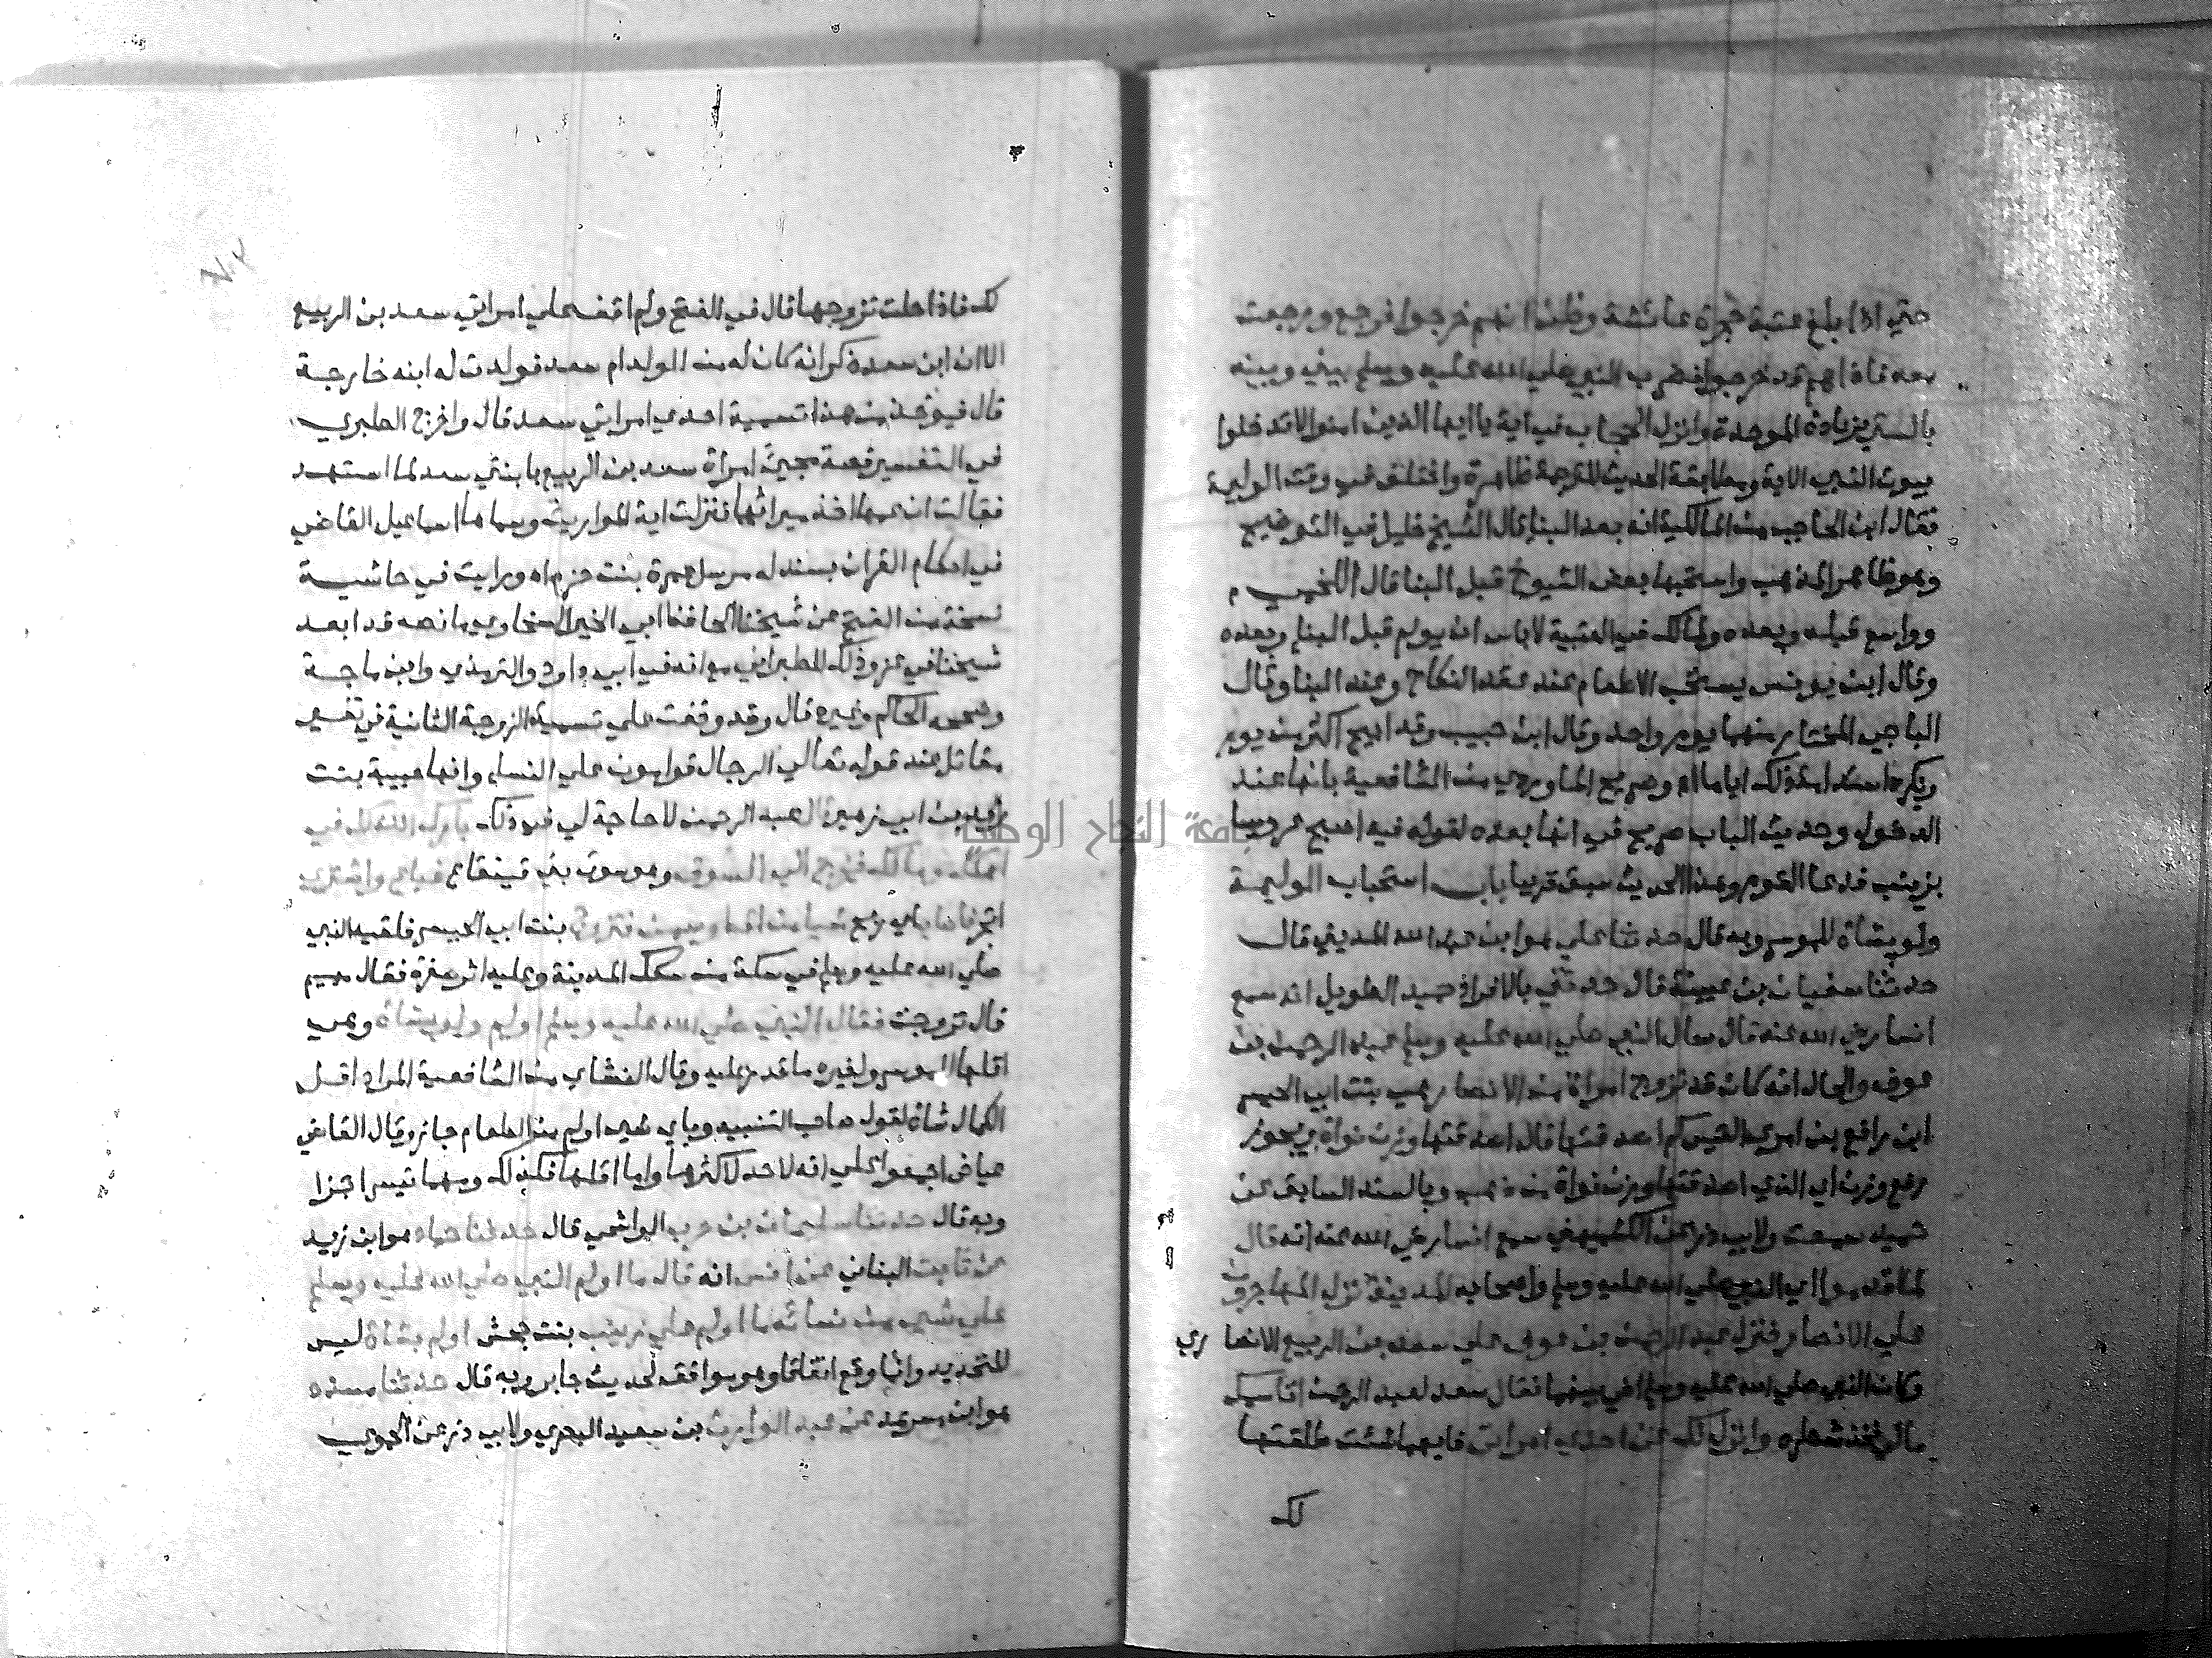 حتي اذا بلغ عتبة حجرة عائشة وظن انهم خرجوا فرجع ورجعت
معه فاذا هم قد خرجوا فضرب النبي صلي الله عليه وسلم بيني وبينه
بالستر بزيادة الموحدة وانزل الحجاب في اية يا ايها الذين امنوا لا تدخلوا
بيوت النبي الاية ومطابقة الحديث للترجمة ظاهرة واختلف في وقت الوليمة
فقال ابن الحاجب من المالكية انه بعد البنا قال الشيخ خليل في التوضيح
وهو ظاهر المذهب واستحبها بعض الشيوخ قبل البنا قال اللخمي
وواسع قبله وبعده ولمالك في العتبية لا باس ان يولم قبل البنا وبعده
وقال ابن يونس يستحب الاطعام عند عقد النكاح وعند البنا وقال
الباجي المختار منها يوم واحد وقال ابن حبيب وقد ابيح اكثر من يوم
ويكره استدامة ذلك اياما اه وصريح الماوردي من الشافعية بانها عند
الدخول وحديث الباب صريح في انها بعده لقوله فيه اصبح عروسا
بزينب فدعا القوم وهذا الحديث سبق قريبا باب استحباب الوليمة
ولو بشاة للموسر وبه قال حدثنا علي هو ابن عبد الله المديني قال
حدثنا سفيان بن عيينة قال حدثني بالافراد حميد الطويل انه سمع
انسا رضي الله عنه قال سال النبي صلي الله عليه وسلم عبد الرحمن بن
عوف والحال انه كان قد تزوج امراة من الانصار هي بنت ابي الحيسر
ابن رافع بن امرئ القيس كم اصدقتها قال اصدقتها وزن نواة يجوز
رفع وزن اي الذي اصدقتها وزن نواة من ذهب وبالسند السابق عن
حميد سمعت ولابي ذر عن الكشميهني سمع انسا رضي الله عنه انه قال
لما قدموا اي النبي صلي الله عليه وسلم واصحابه المدينة نزل المهاجرون
علي الانصار فنزل عبد الرحمن بن عوف علي سعد بن الربيع الانصاري
وكان النبي صلي الله عليه وسلم اخي بينهما فقال سعد لعبد الرحمن اقاسمك
مالي فخذ شطره وانزل لك عن احدي امراتي فايهما شئت طلقتها
لك
لك فاذا حلت تزوجها قال في الفتح ولم اقف علي امراتي سعد بن الربيع
الا ان ابن سعد ذكر انه كان له من الولد ام سعد فولدت له ابنه خارجة
قال فيؤخذ من هذا تسمية احدي امراتي سعد قال واخرج الطبري
في التفسير قصة مجيئ امراة سعد بن الربيع بابنتي سعد لما استشهد
فقالت ان عمهما اخذ ميراثهما فنزلت اية المواريث وسماها اسماعيل القاضي
في احكام القران بسند له مرسل عمرة بنت حزم اه ورايت في حاشية
نسخة من الفتح عن شيخنا الحافظ ابي الخير السخاوي ما نصه قد ابعد
شيخنا في عزو ذلك للطبراني مع انه في ابي داود والترمذي وابن ماجة
وصححه الحاكم وغيره قال وقد وقفت علي تسمية الزوجة الثانية في تفسير
مقاتل عند قوله تعالي الرجال قوامون علي النساء وانها حبيبة بنت
زيد بن ابي زهير قال عبد الرحمن لا حاجة لي في ذلك بارك الله لك في
اهلك ومالك فخرج الي السوق وهو سوق بني قينقاع فباع واشتري
صلي الله عليه وسلم في سكة من سكك المدينة وعليه اثر صفرة فقال مهيم
قال تزوجت فقال النبي صلي الله عليه وسلم اولم ولو بشاة وهي
اقلها للموسر ولغيره ما قدر عليه وقال النشاي من الشافعية المراد اقل
الكمال شاة لقول صاحب التنبيه وباي شيء اولم من الطعام جاز وقال القاضي
عياض اجمعوا علي انه لا حد لاكثرها واما اقلها فكذلك ومهما تيسر اجزا
وبه قال حدثنا سليمان بن حرب الواشحي قال حدثنا حماد هو ابن زيد
عن ثابت البناني عن انس انه قال ما اولم النبي صلي الله عليه وسلم
علي شي من نسائه ما اولم علي زينب بنت جحش اولم بشاة ليس
للتحديد وانما وقع اتفاقا وهو موافقة لحديث جابر وبه قال حدثنا مسدد
هو ابن مسرهد عن عبد الوارث بن سعيد البصري ولابي ذر عن الحموي
جامعة النجاح الوطنية